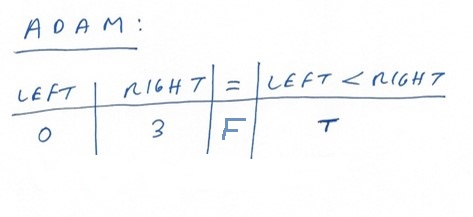 ADAM:
LEFT | RIGHT | = | LEFT < RIGHT
0 | 3 | F | T